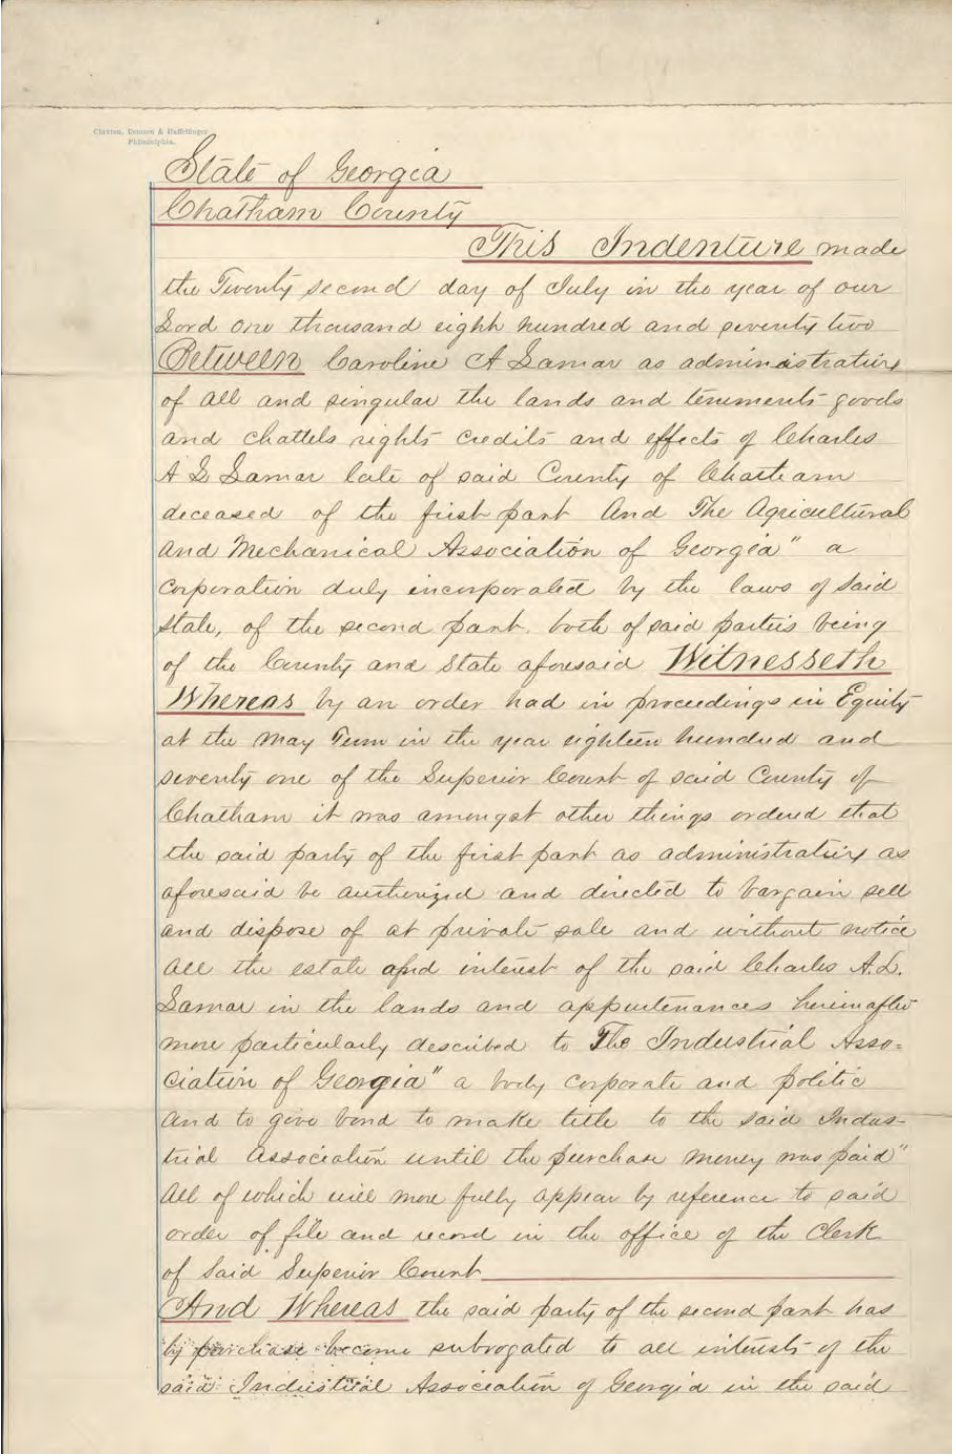 Claxton, Remsen & Haffelfinger
Philadelphia.
State of Georgia
Chatham County
This Indenture made
the Twenty second day of July in the year of our
Lord one thousand eight hundred and seventy two
Between Caroline A Lamar as administratrix
of all and singular the lands and tenements goods
and chattels rights credits and effects of Charles
A L Lamar late of said County of Chatham
deceased of the first part And The Agricultural
and Mechanical Association of Georgia" a
corporation duly incorporated by the laws of said
State, of the second part. both of said parties being
of the County and State aforesaid Witnesseth
Whereas by an order had in proceedings in Equity
at the May Term in the year eighteen hundred and
seventy one of the Superior Court of said County of
Chatham it was amongst other things ordered that
the said party of the first part as administratrix as
aforesaid be authorized and directed to bargain sell
and dispose of at private sale and without notice
all the estate and interest of the said Charles A.L.
Lamar in the lands and appurtenances hereinafter
more particularly described to The Industrial Asso=
ciation of Georgia" a body corporate and politic
and to give bond to make title to the said Indus-
trial Association until the purchase money was paid"
all of which will more fully appear by reference to said
order of file and record in the office of the Clerk
of said Superior Court
And Whereas the said party of the second part has
by purchase become subrogated to all interests of the
said Industrial Association of Georgia in the said